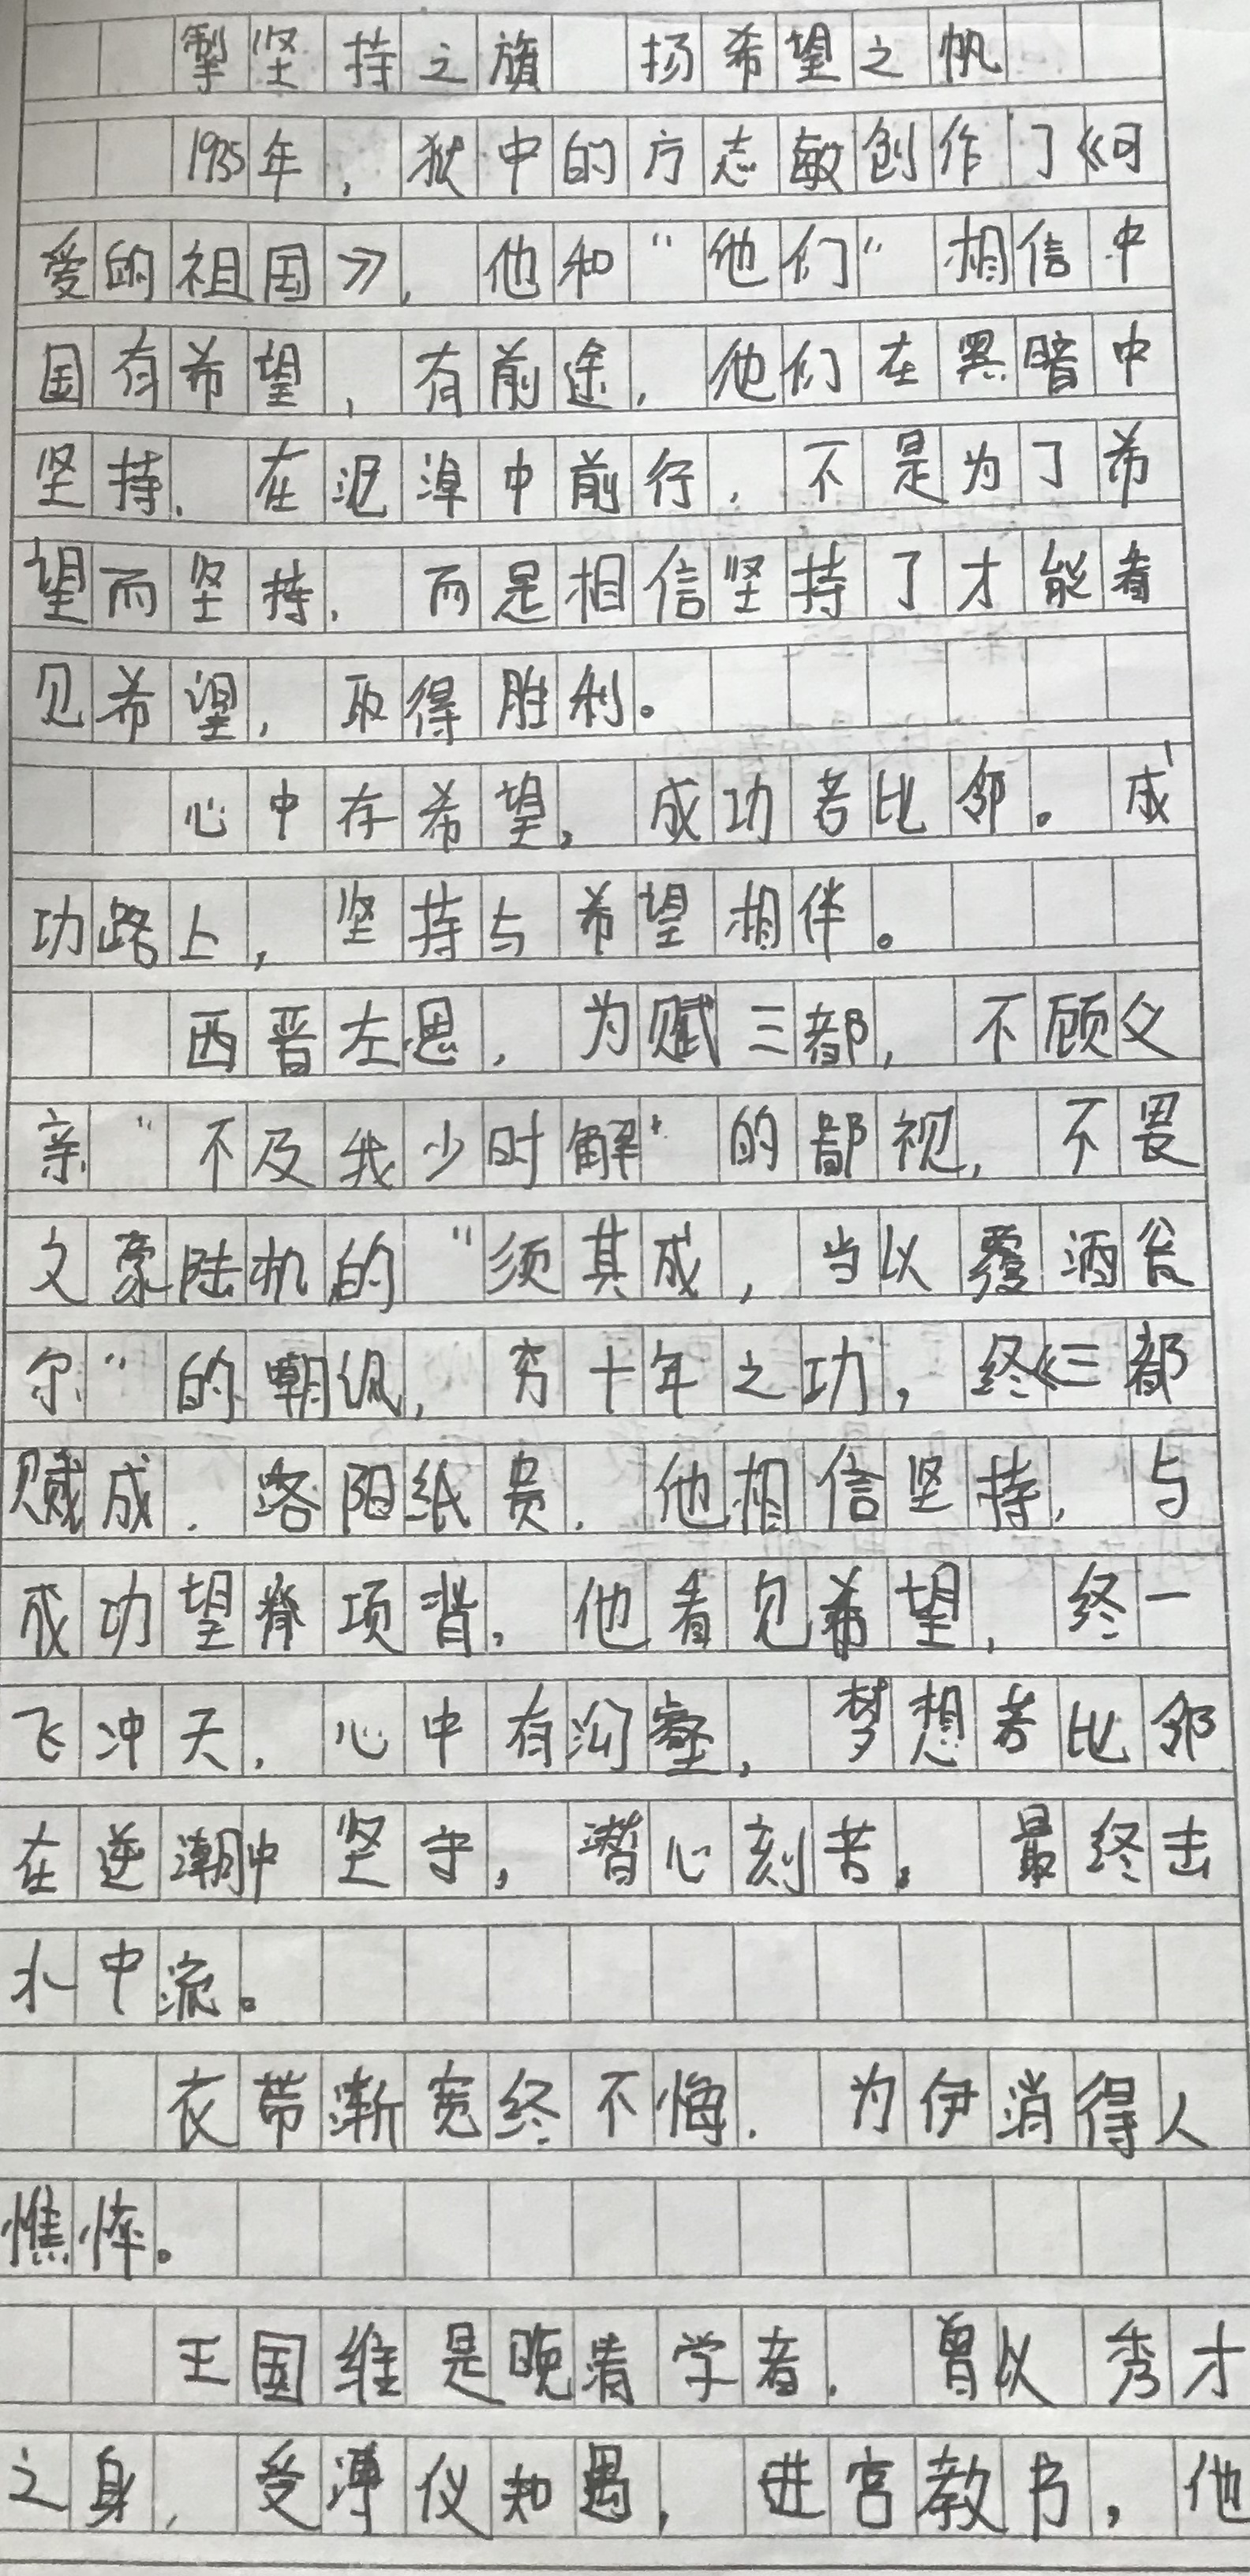 掣坚持之旗 扬希望之帆
1935年，狱中的方志敏创作了《可
爱的祖国》，他和“他们”相信中
国有希望，有前途，他们在黑暗中
坚持，在泥淖中前行，不是为了希
望而坚持，而是相信坚持了才能看
见希望，取得胜利。
心中存希望，成功若比邻。成
功路上，坚持与希望相伴。
西晋左思，为赋三都，不顾父
亲“不及我少时解”的鄙视，不畏
文豪陆机的“须其成，当以覆酒瓮
尔”的嘲讽，穷十年之功，终《三都
赋成，洛阳纸贵，他相信坚持，与
成功望脊项背，他看见希望，终一
飞冲天，心中有沟壑，梦想若比邻
在逆潮中坚守，潜心刻苦，最终击
水中流。
衣带渐宽终不悔，为伊消得人
憔悴。
王国维是晚清学者，曾以秀才
之身，受溥仪知遇，进宫教书，他